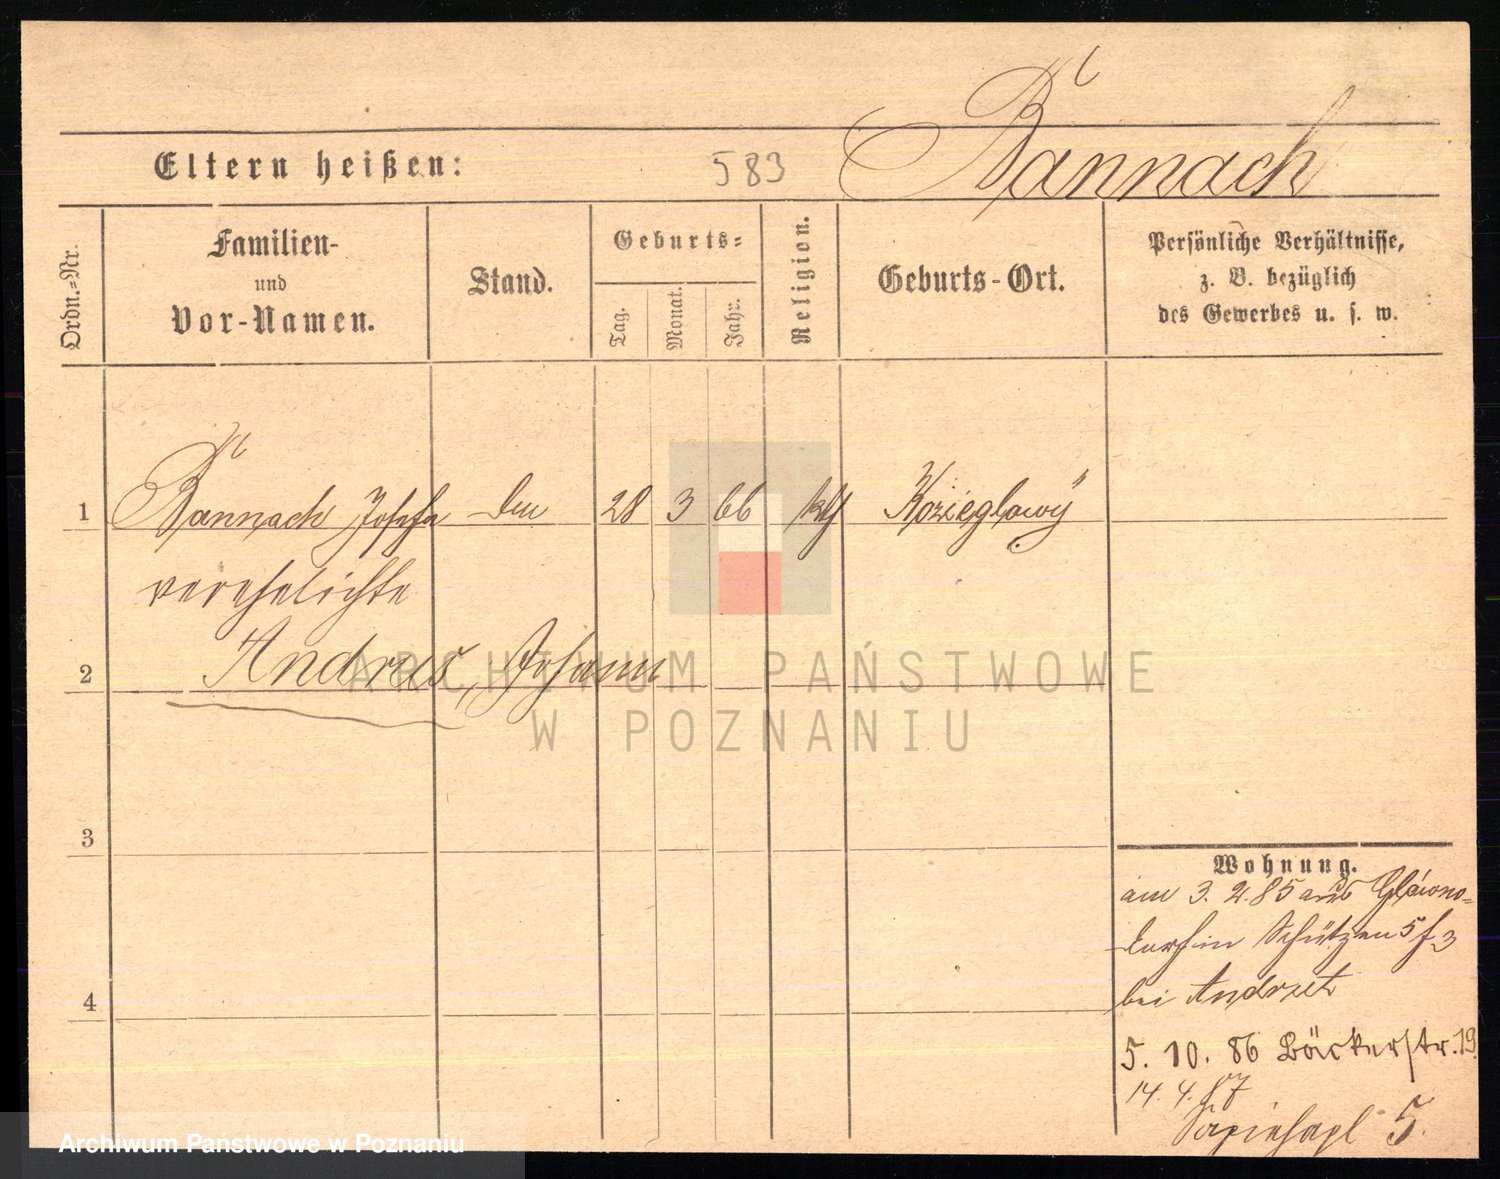 Bannach
Eltern heißen:
583
Ordn.-Nr.
Familien-
und
Vor-Namen.
Stand.
Geburts-
Tag.
Monat.
Jahr.
Religion.
Geburts-Ort.
Persönliche Verhältnisse,
z. B. bezüglich
des Gewerbes u. s. w.
1 Bannach Josepha 28 3 66 kth Kozieglowy
verehelichte
2 Andrus, Johann
ARCHIWUM PAŃSTWOWE
W POZNANIU
3
4
Wohnung.
am 3. 2. 85 aus Glowno-
dorf in Schützen 5
bei
5. 10. 86 Bäckerstr. 19
14. 4. 87
Sapiehapl 5.
Archiwum Państwowe w Poznaniu